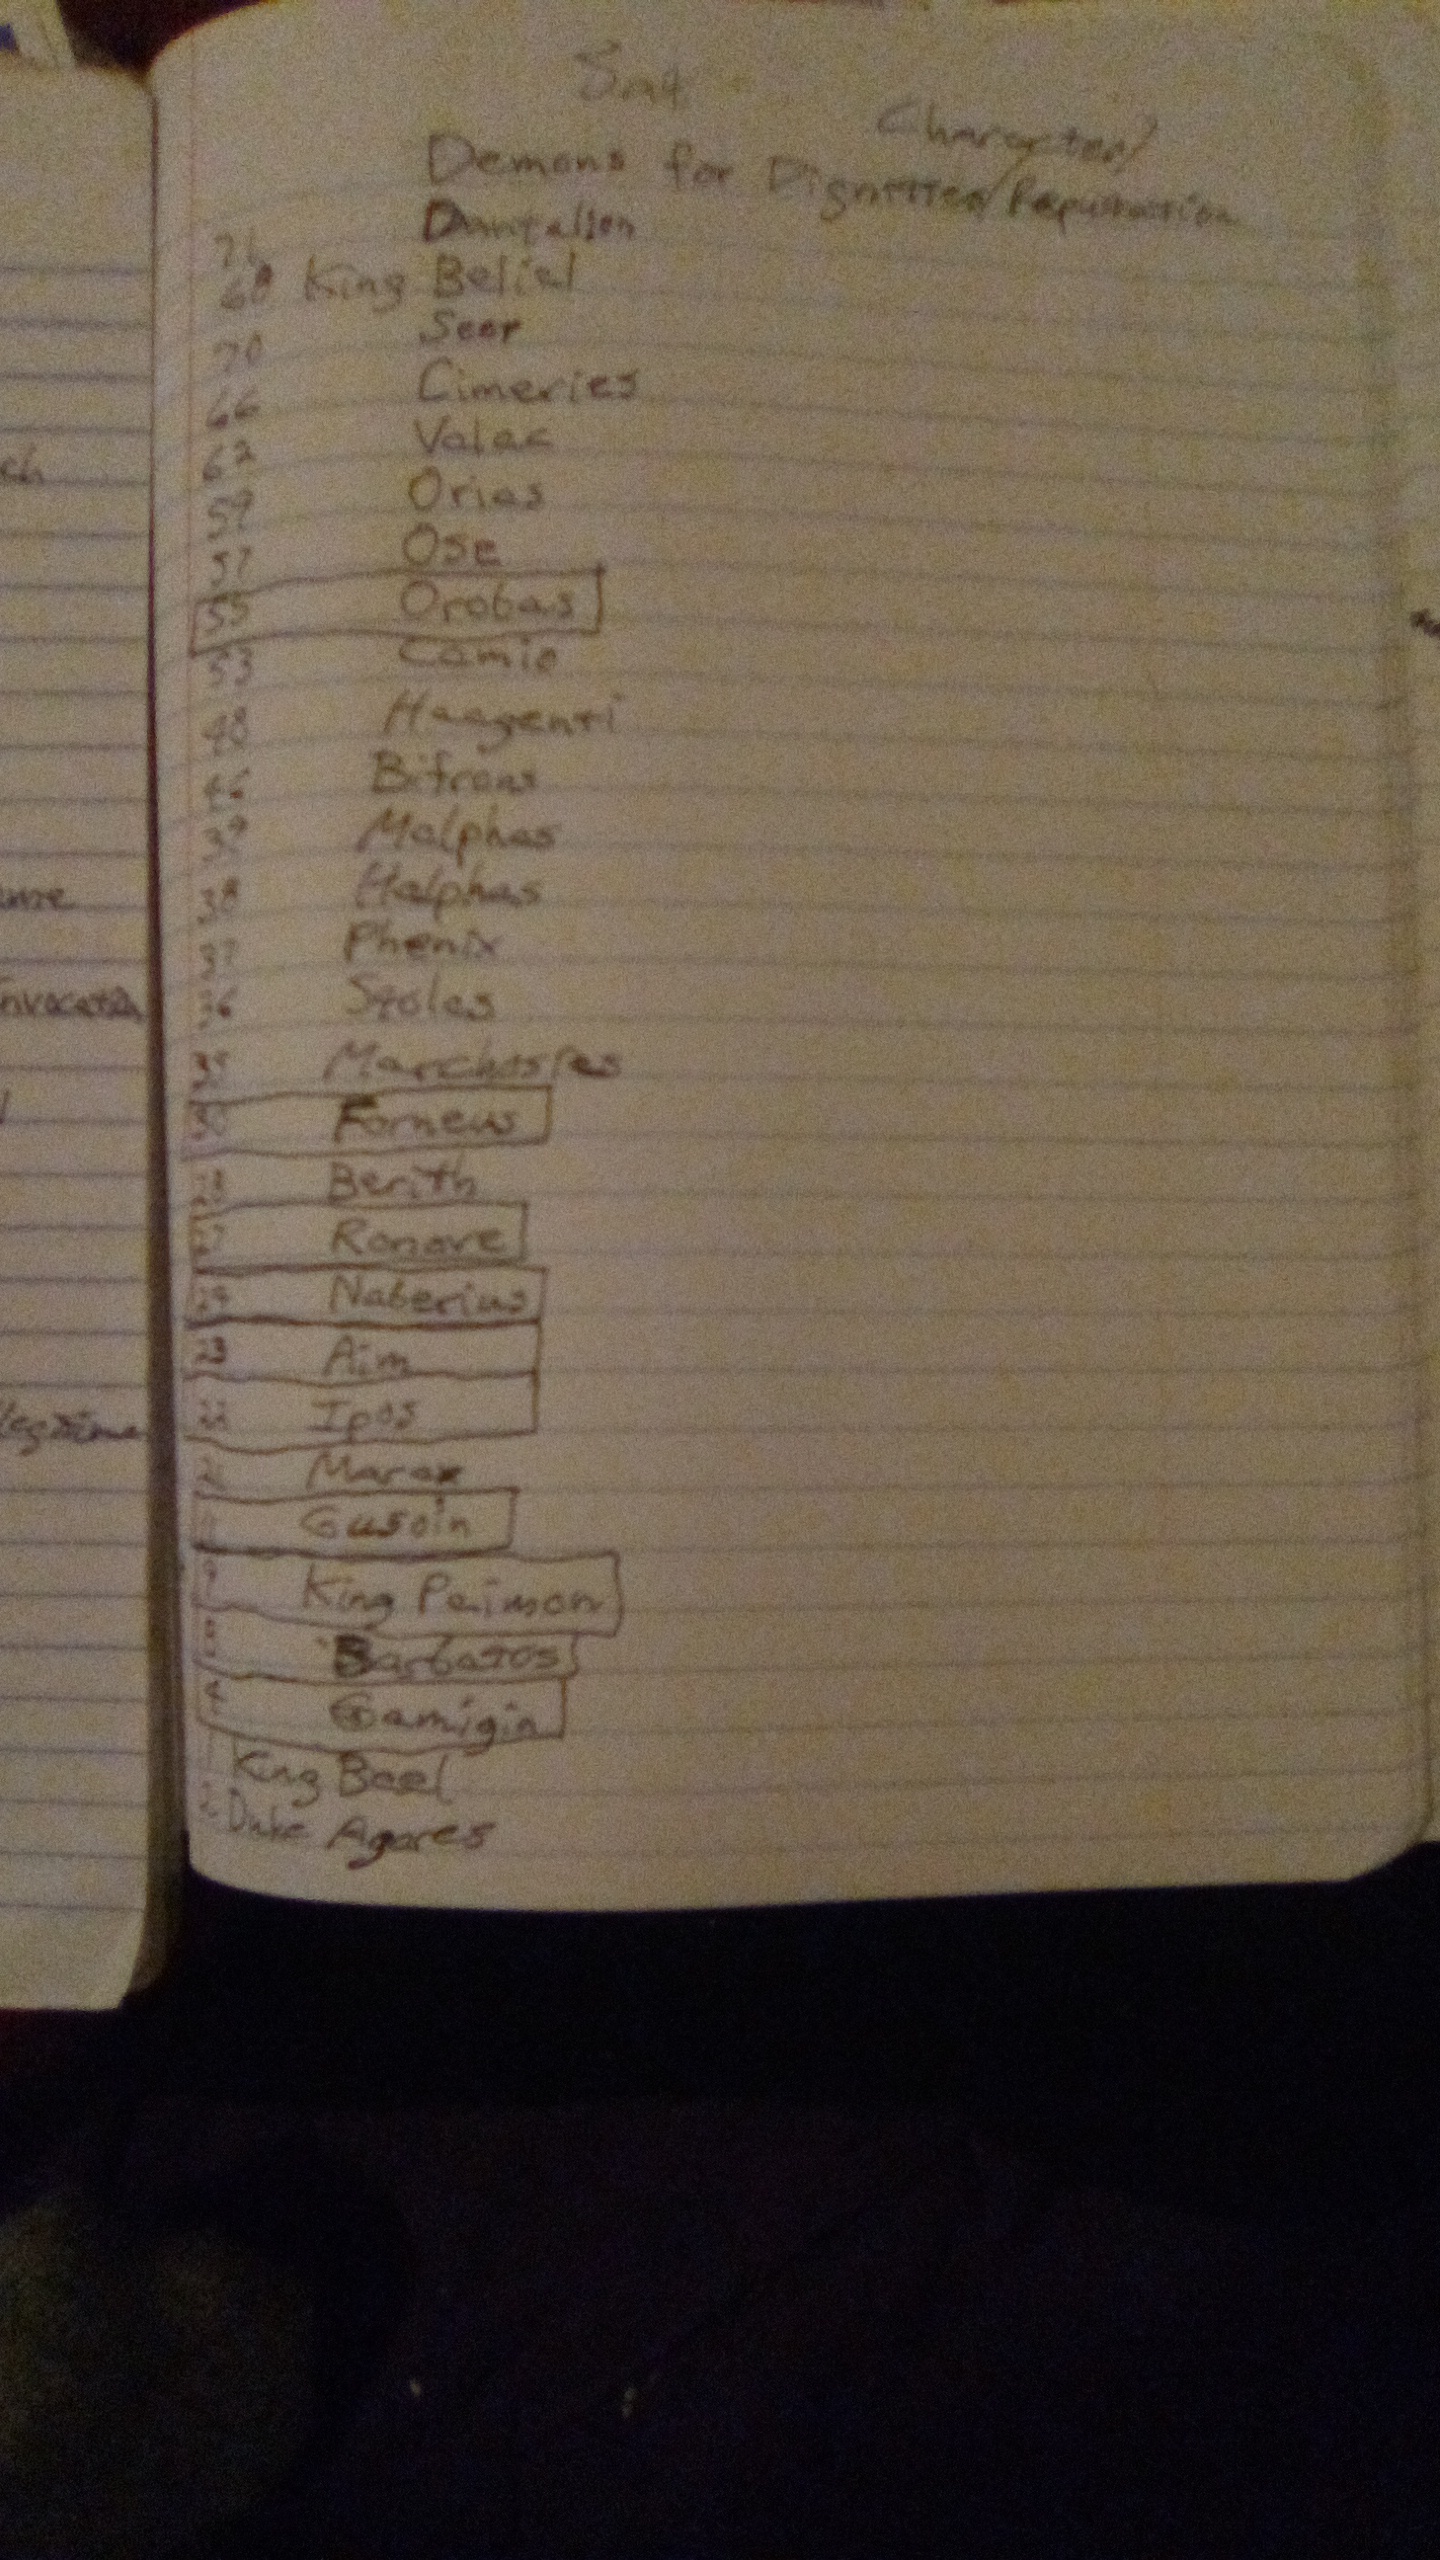 Character/
Demons for Dignities/Repustation
71 Dantalion
68 King Belial
70 Seer
66 Cimeries
62 Valac
59 Orias
57 Ose
55 Orobas
53 Camio
48 Haagenti
46 Bifrons
39 Malphas
38 Halphas
37 Phenix
36 Stolas
35 Marchosies
30 Forneus
28 Berith
27 Ronove
24 Naberius
23 Aim
22 Ipos
21 Marax
11 Gusoin
9 King Paimon
8 Barbatos
4 Gamigin
1 King Bael
2 Duke Agares
ch
invocation